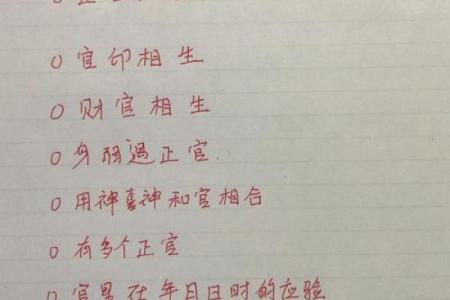 o 官印相生
o 财官相生
o 身弱遇正官.
o 用神喜神和官相合
o 有多个正官
o 官星在年月日时的应验